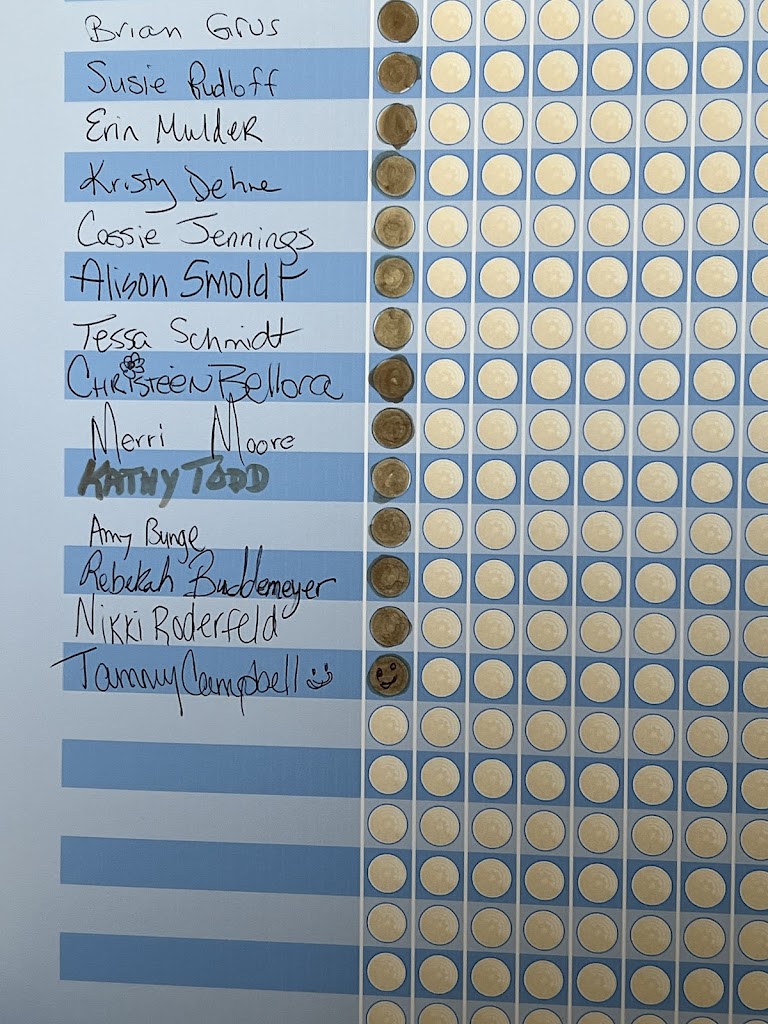 Brian Grus
Susie Rudloff
Erin Mulder
Kristy Dehne
Cassie Jennings
Alison Smoldt
Tessa Schmidt
CHRISTEEN Bellora
Merri Moore
KATHY TODD
Amy Bunge
Rebekah Buddemeyer
Nikki Roderfeld
Tammy Campbell